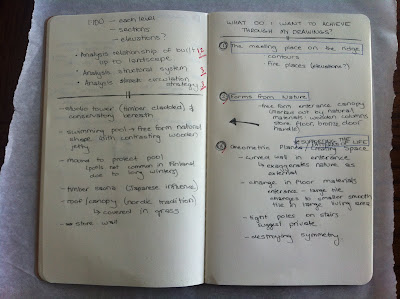 TODO - each level
- sections
- elevations?
• Analysis relationship of built up to landscape.
• Analysis structural system
• Analysis circulation strategy
- studio tower (timber cladded) & conservatory beneath
- swimming pool → free form natural shape (with contrasting wooden jetty)
- mound to protect pool (pools not common in Finland due to long winters)
- timber sauna (Japanese influence)
- roof / canopy (nordic tradition)
↳ covered in grass
- stone wall
WHAT DO I WANT TO ACHIEVE
THROUGH MY DRAWINGS?
① The meeting place on the ridge
contours
Fire places (elevations?)
② Forms from Nature
- free form entrance canopy
(various out by natural
materials: wooden columns
stone, floor, bronze door
handle)
SUPPORTING THE LIFE
③ Geometric Planes / Creating Space
- curved wall in entrance
↳ exaggerates nature as
external
- change in floor materials
entrance - large tile
changes to smaller smooth
tile in large living area
- light poles on stairs
suggest private
- destroying symmetry